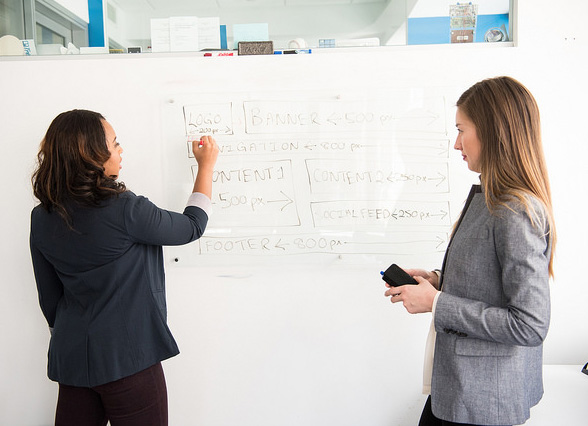 LOGO
BANNER ← 600 px →
← 200 px →
NAVIGATION ← 800 px
CONTENT 1
500 px →
CONTENT 2 ← 250 px →
SOCIAL FEED ← 250 px →
FOOTER ← 800 px →